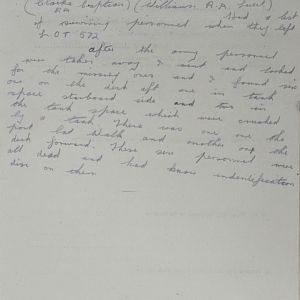 (Clarke Captain) (Williams R.A. Lieut)
RA Had a list
of surviving personnel when they left
LOT 572
after the army personnel
were taken away I went and looked
for the missing ones and I found six
on the deck aft one in tank
space starboard side and two in
the tank space which were crushed
by a tank There was one one the
port cat Walk and another one the
deck forward. These six personnel were
all dead and had know indentification
disc on them